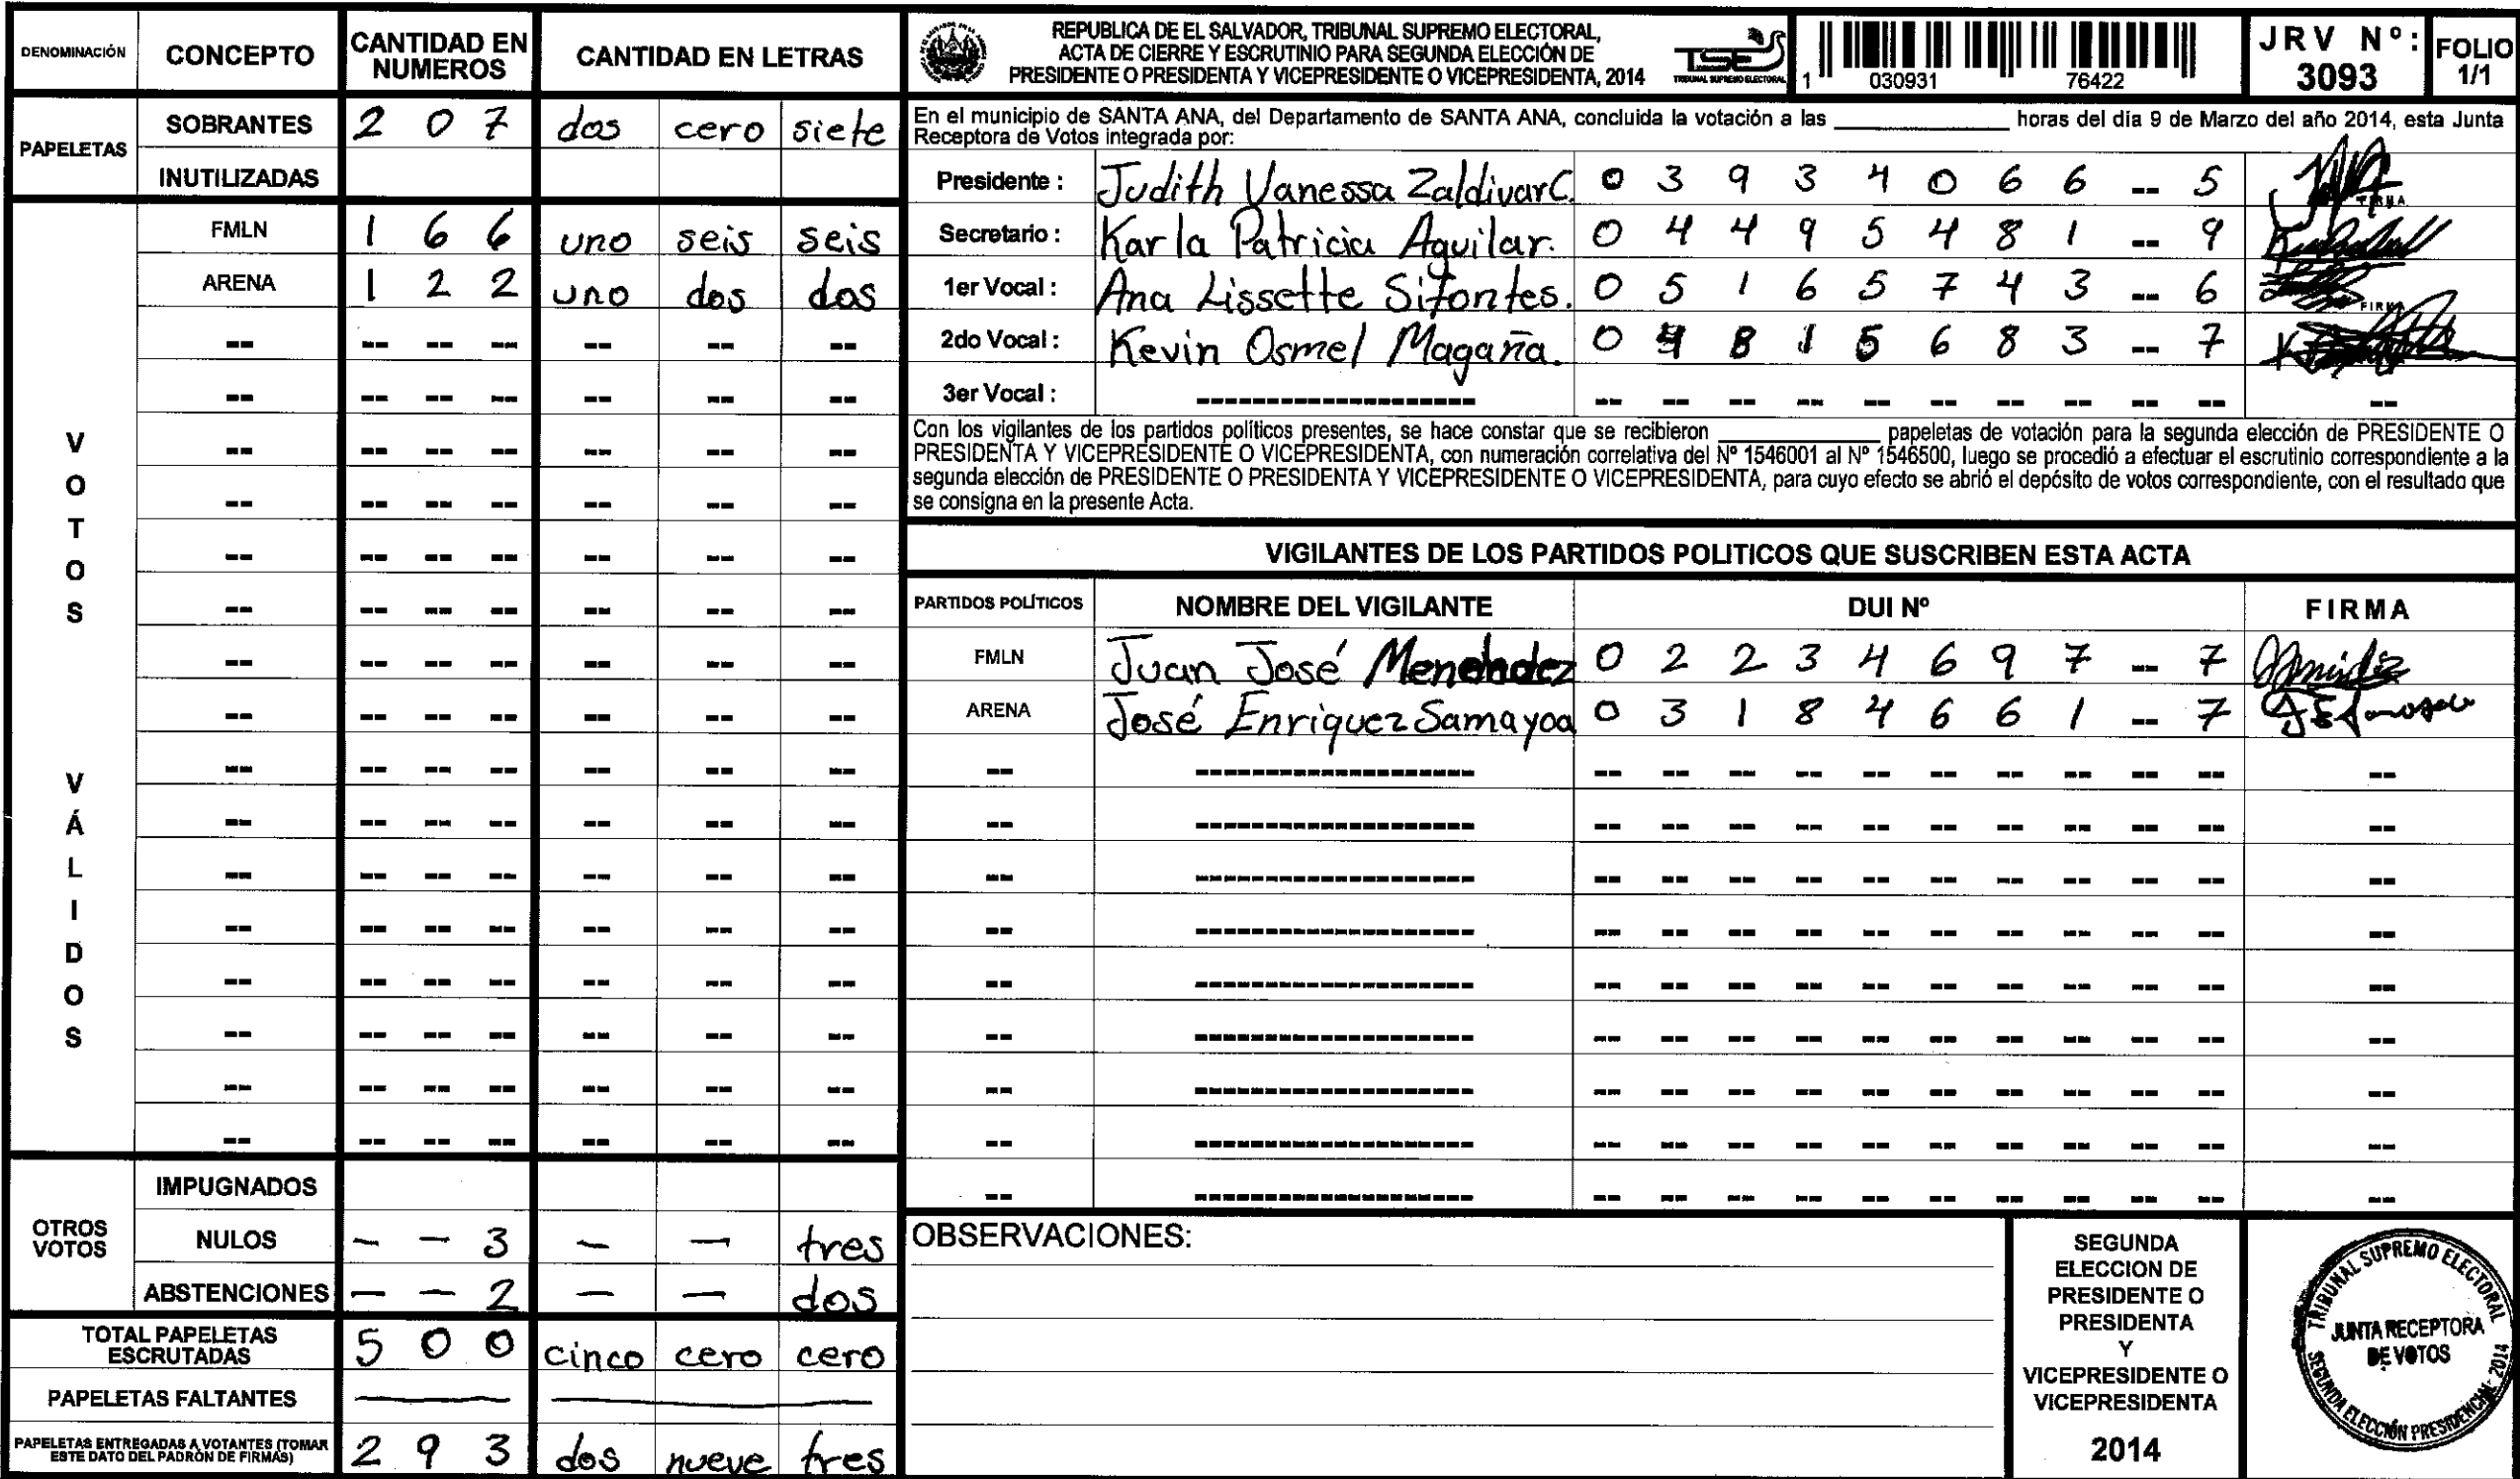 DENOMINACIÓN CONCEPTO CANTIDAD EN NUMEROS CANTIDAD EN LETRAS
PAPELETAS
SOBRANTES 2 0 7 dos cero siete
INUTILIZADAS
VOTOS VÁLIDOS
FMLN 1 6 6 uno seis seis
ARENA 1 2 2 uno dos dos
OTROS VOTOS
IMPUGNADOS
NULOS - - 3 - - tres
ABSTENCIONES - - 2 - - dos
TOTAL PAPELETAS ESCRUTADAS 5 0 0 cinco cero cero
PAPELETAS FALTANTES
PAPELETAS ENTREGADAS A VOTANTES (TOMAR ESTE DATO DEL PADRÓN DE FIRMAS) 2 9 3 dos nueve tres
REPUBLICA DE EL SALVADOR, TRIBUNAL SUPREMO ELECTORAL,
ACTA DE CIERRE Y ESCRUTINIO PARA SEGUNDA ELECCIÓN DE
PRESIDENTE O PRESIDENTA Y VICEPRESIDENTE O VICEPRESIDENTA, 2014
TSE
TRIBUNAL SUPREMO ELECTORAL
1 030931 76422
JRV Nº: 3093
FOLIO 1/1
En el municipio de SANTA ANA, del Departamento de SANTA ANA, concluida la votación a las ____ horas del día 9 de Marzo del año 2014, esta Junta
Receptora de Votos integrada por:
Presidente : Judith Vanessa Zaldivar C. 0 3 9 3 4 0 6 6 -- 5
FIRMA
Secretario : Karla Patricia Aguilar. 0 4 4 9 5 4 8 1 -- 9
1er Vocal : Ana Lissette Sifontes. 0 5 1 6 5 7 4 3 -- 6
FIRMA
2do Vocal : Kevin Osmel Magaña. 0 4 8 1 5 6 8 3 -- 7
3er Vocal :
Con los vigilantes de los partidos políticos presentes, se hace constar que se recibieron ____ papeletas de votación para la segunda elección de PRESIDENTE O
PRESIDENTA Y VICEPRESIDENTE O VICEPRESIDENTA, con numeración correlativa del Nº 1546001 al Nº 1546500, luego se procedió a efectuar el escrutinio correspondiente a la
segunda elección de PRESIDENTE O PRESIDENTA Y VICEPRESIDENTE O VICEPRESIDENTA, para cuyo efecto se abrió el depósito de votos correspondiente, con el resultado que
se consigna en la presente Acta.
VIGILANTES DE LOS PARTIDOS POLITICOS QUE SUSCRIBEN ESTA ACTA
PARTIDOS POLÍTICOS NOMBRE DEL VIGILANTE DUI Nº FIRMA
FMLN Juan José Menendez 0 2 2 3 4 6 9 7 -- 7
ARENA José Enriquez Samayoa 0 3 1 8 4 6 6 1 -- 7
OBSERVACIONES:
SEGUNDA
ELECCION DE
PRESIDENTE O
PRESIDENTA
Y
VICEPRESIDENTE O
VICEPRESIDENTA
2014
TRIBUNAL SUPREMO ELECTORAL
JUNTA RECEPTORA
DE VOTOS
SEGUNDA ELECCIÓN PRESIDENCIAL 2014